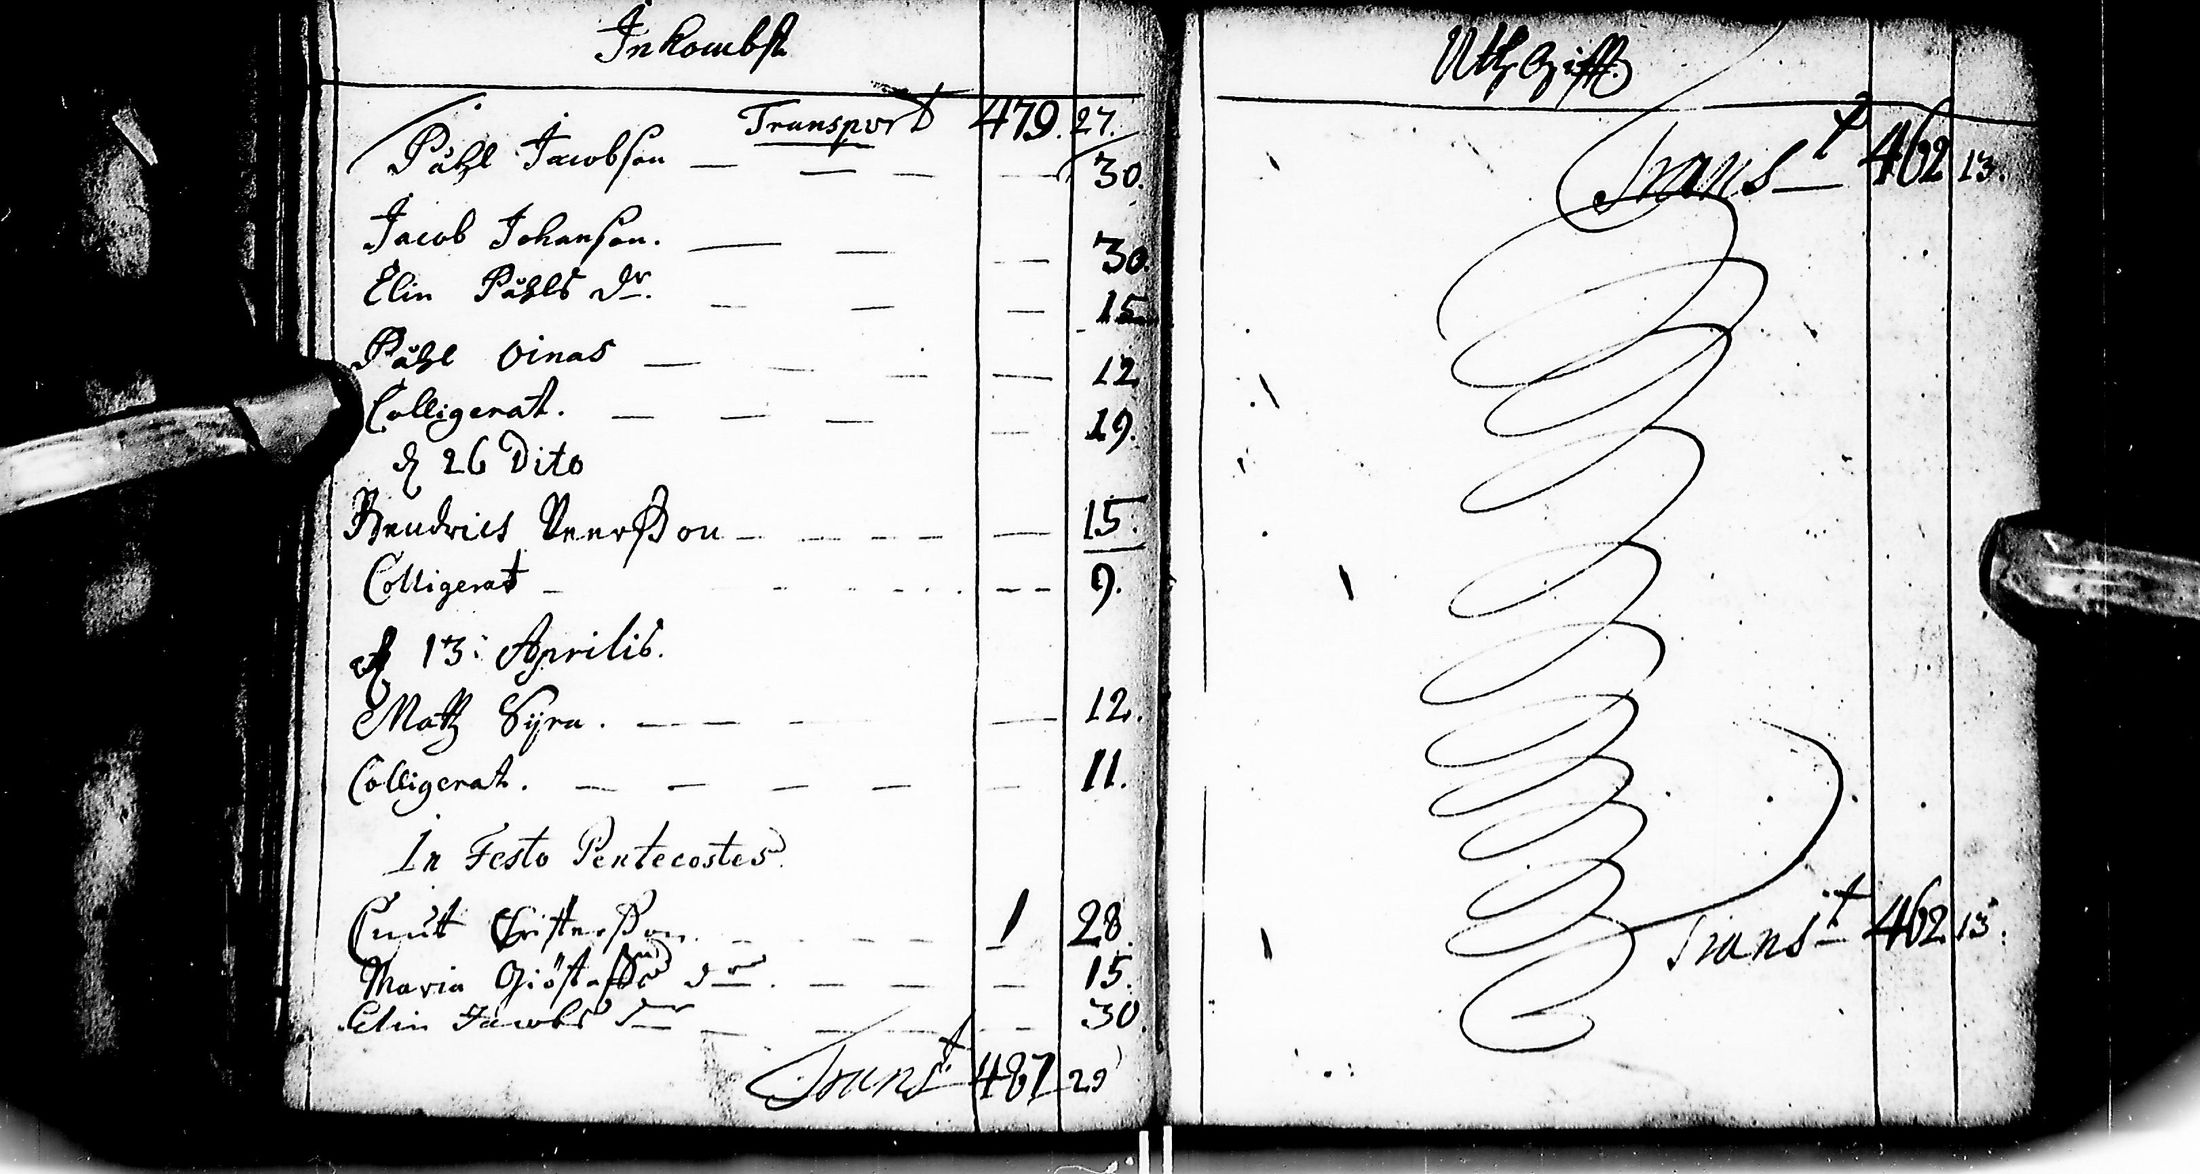 Inkombst
Transport 479. 27.
Påhl Jacobson — — — — 30.
Jacob Johanson. — — — 30.
Elin Påhls dr. — — — 15
Påhl Oinas — — — — — 12
Colligerat. — — — — 19.
d 26 Dito
Hendrich Peerßon — — — — — 15.
Colligerat — — — — 9.
d 13: Aprilis.
Matz Syra. — — — — 12.
Colligerat. — — — — — 11.
In Festo Pentecostes.
Cnut Christerßon. — — — — 1 28.
Maria Giöstafs dr. — — — 15.
Elin Jacobs dr — — — 30.
Transt 487 29
Uthgifft.
Transt — 462 13.
Transt 462 13.